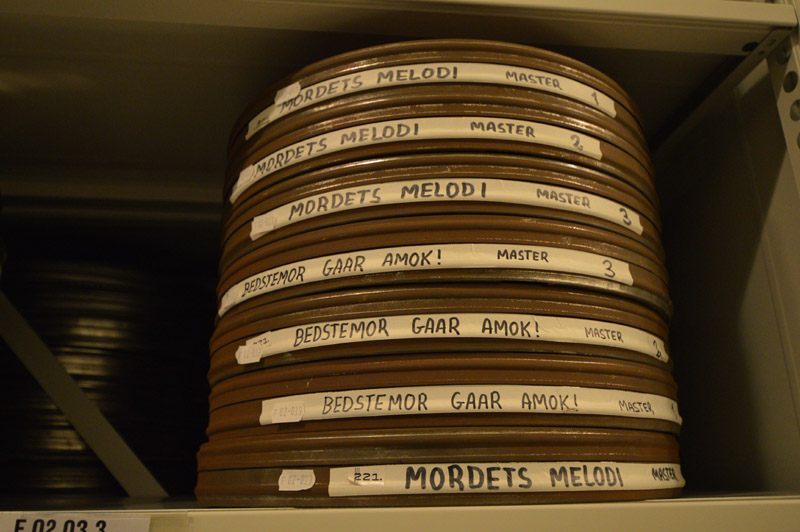 MORDETS MELODI MASTER 1
MORDETS MELODI MASTER 2
MORDETS MELODI MASTER 3
BEDSTEMOR GAAR AMOK! MASTER 3
221. BEDSTEMOR GAAR AMOK! MASTER 2
F02-033 BEDSTEMOR GAAR AMOK! MASTER 1
221. MORDETS MELODI MASTER
F 02 03 3